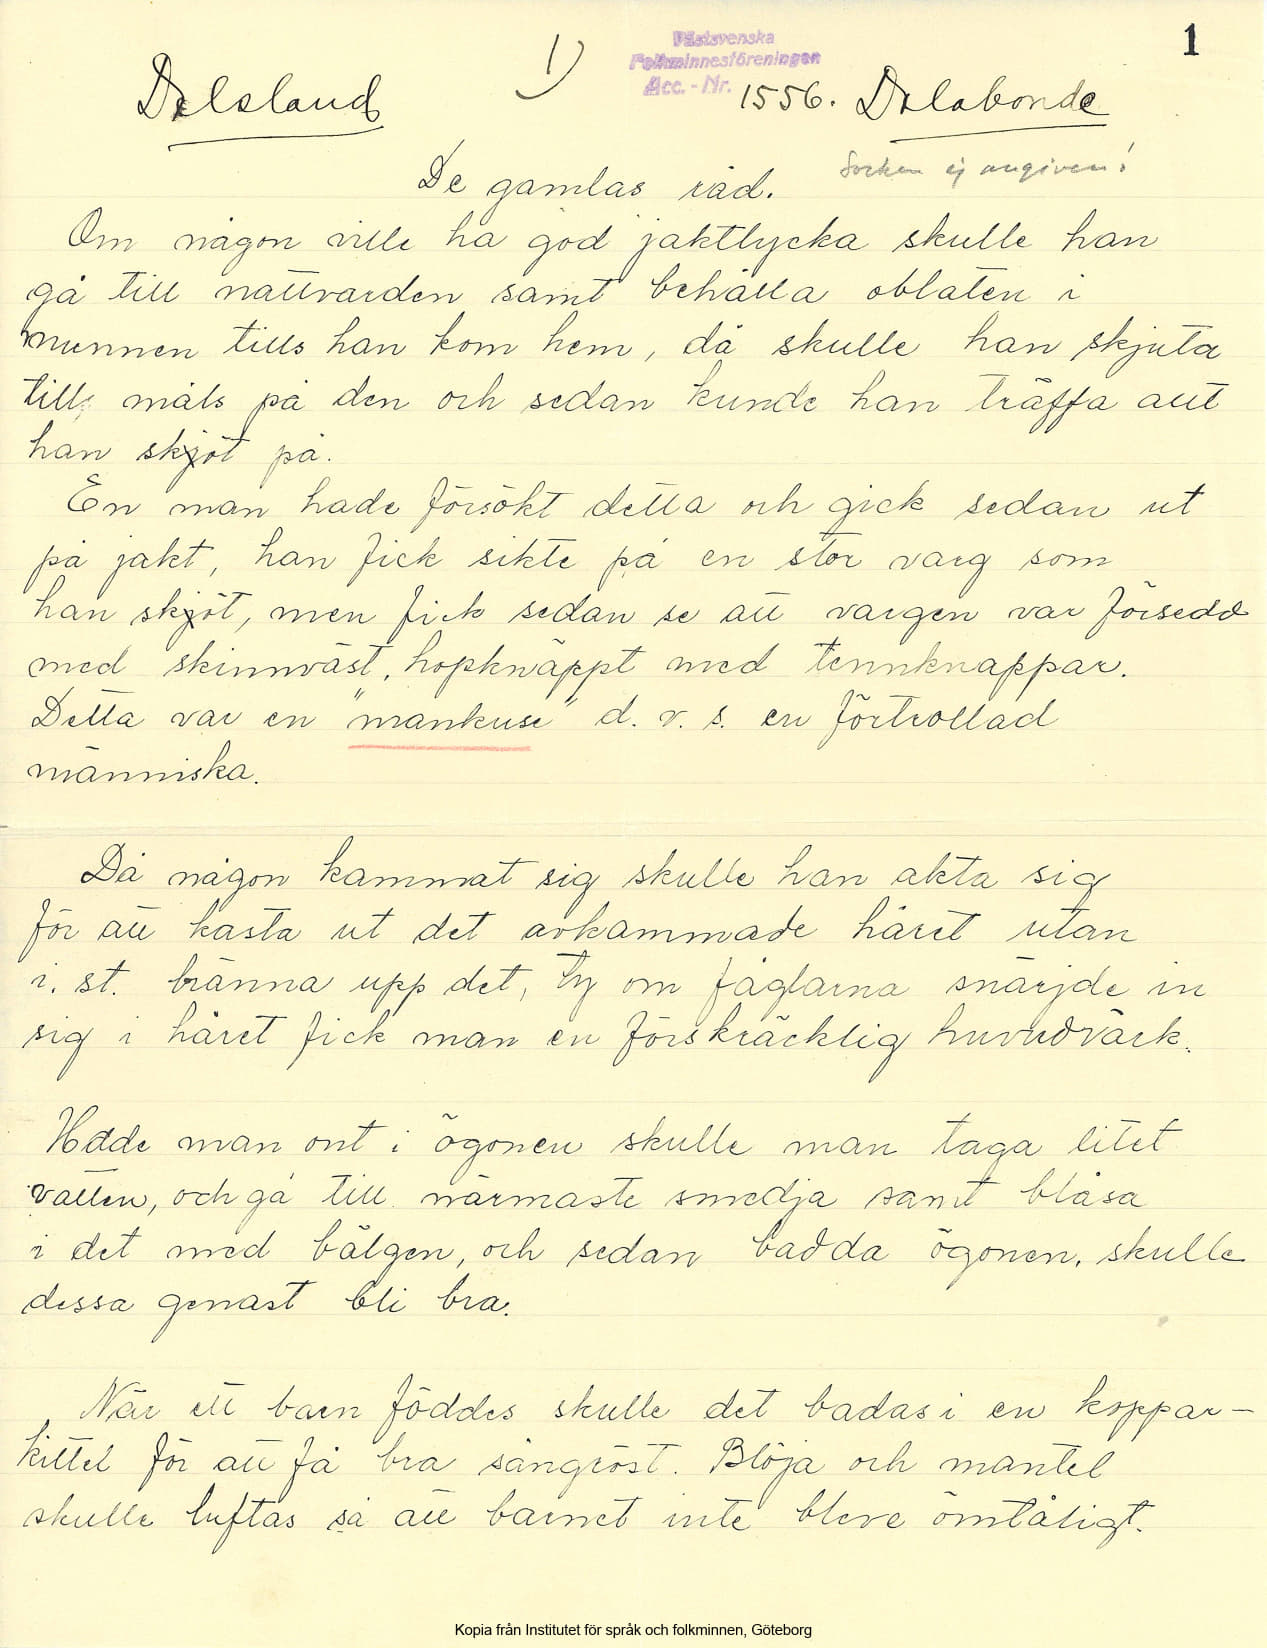 1
1)
Västsvenska
Folkminnesföreningen
Acc.-Nr. 1556.
Dalsland
Dalabonde
Socken ej angiven!
De gamlas råd.
Om någon ville ha god jaktlycka skulle han
gå till nattvarden samt behålla oblaten i
munnen tills han kom hem, då skulle han skjuta
till måls på den och sedan kunde han träffa allt
han skjöt på.
En man hade försökt detta och gick sedan ut
på jakt, han fick sikte på en stor varg som
han skjöt, men fick sedan se att vargen var försedd
med skinnväst, hopknäppt med tennknappar.
Detta var en "mankuse" d. v. s. en förtrollad
människa.
Då någon kammat sig skulle han akta sig
för att kasta ut det avkammade håret utan
i. st. bränna upp det, ty om fåglarna snärjde in
sig i håret fick man en förskräcklig huvudvärk.
Hade man ont i ögonen skulle man taga litet
vatten, och gå till närmaste smedja samt blåsa
i det med bälgen, och sedan badda ögonen, skulle
dessa genast bli bra.
När ett barn föddes skulle det badas i en koppar-
kittel för att få bra sångröst. Blöja och mantel
skulle luftas så att barnet inte bleve ömtåligt.
Kopia från Institutet för språk och folkminnen, Göteborg